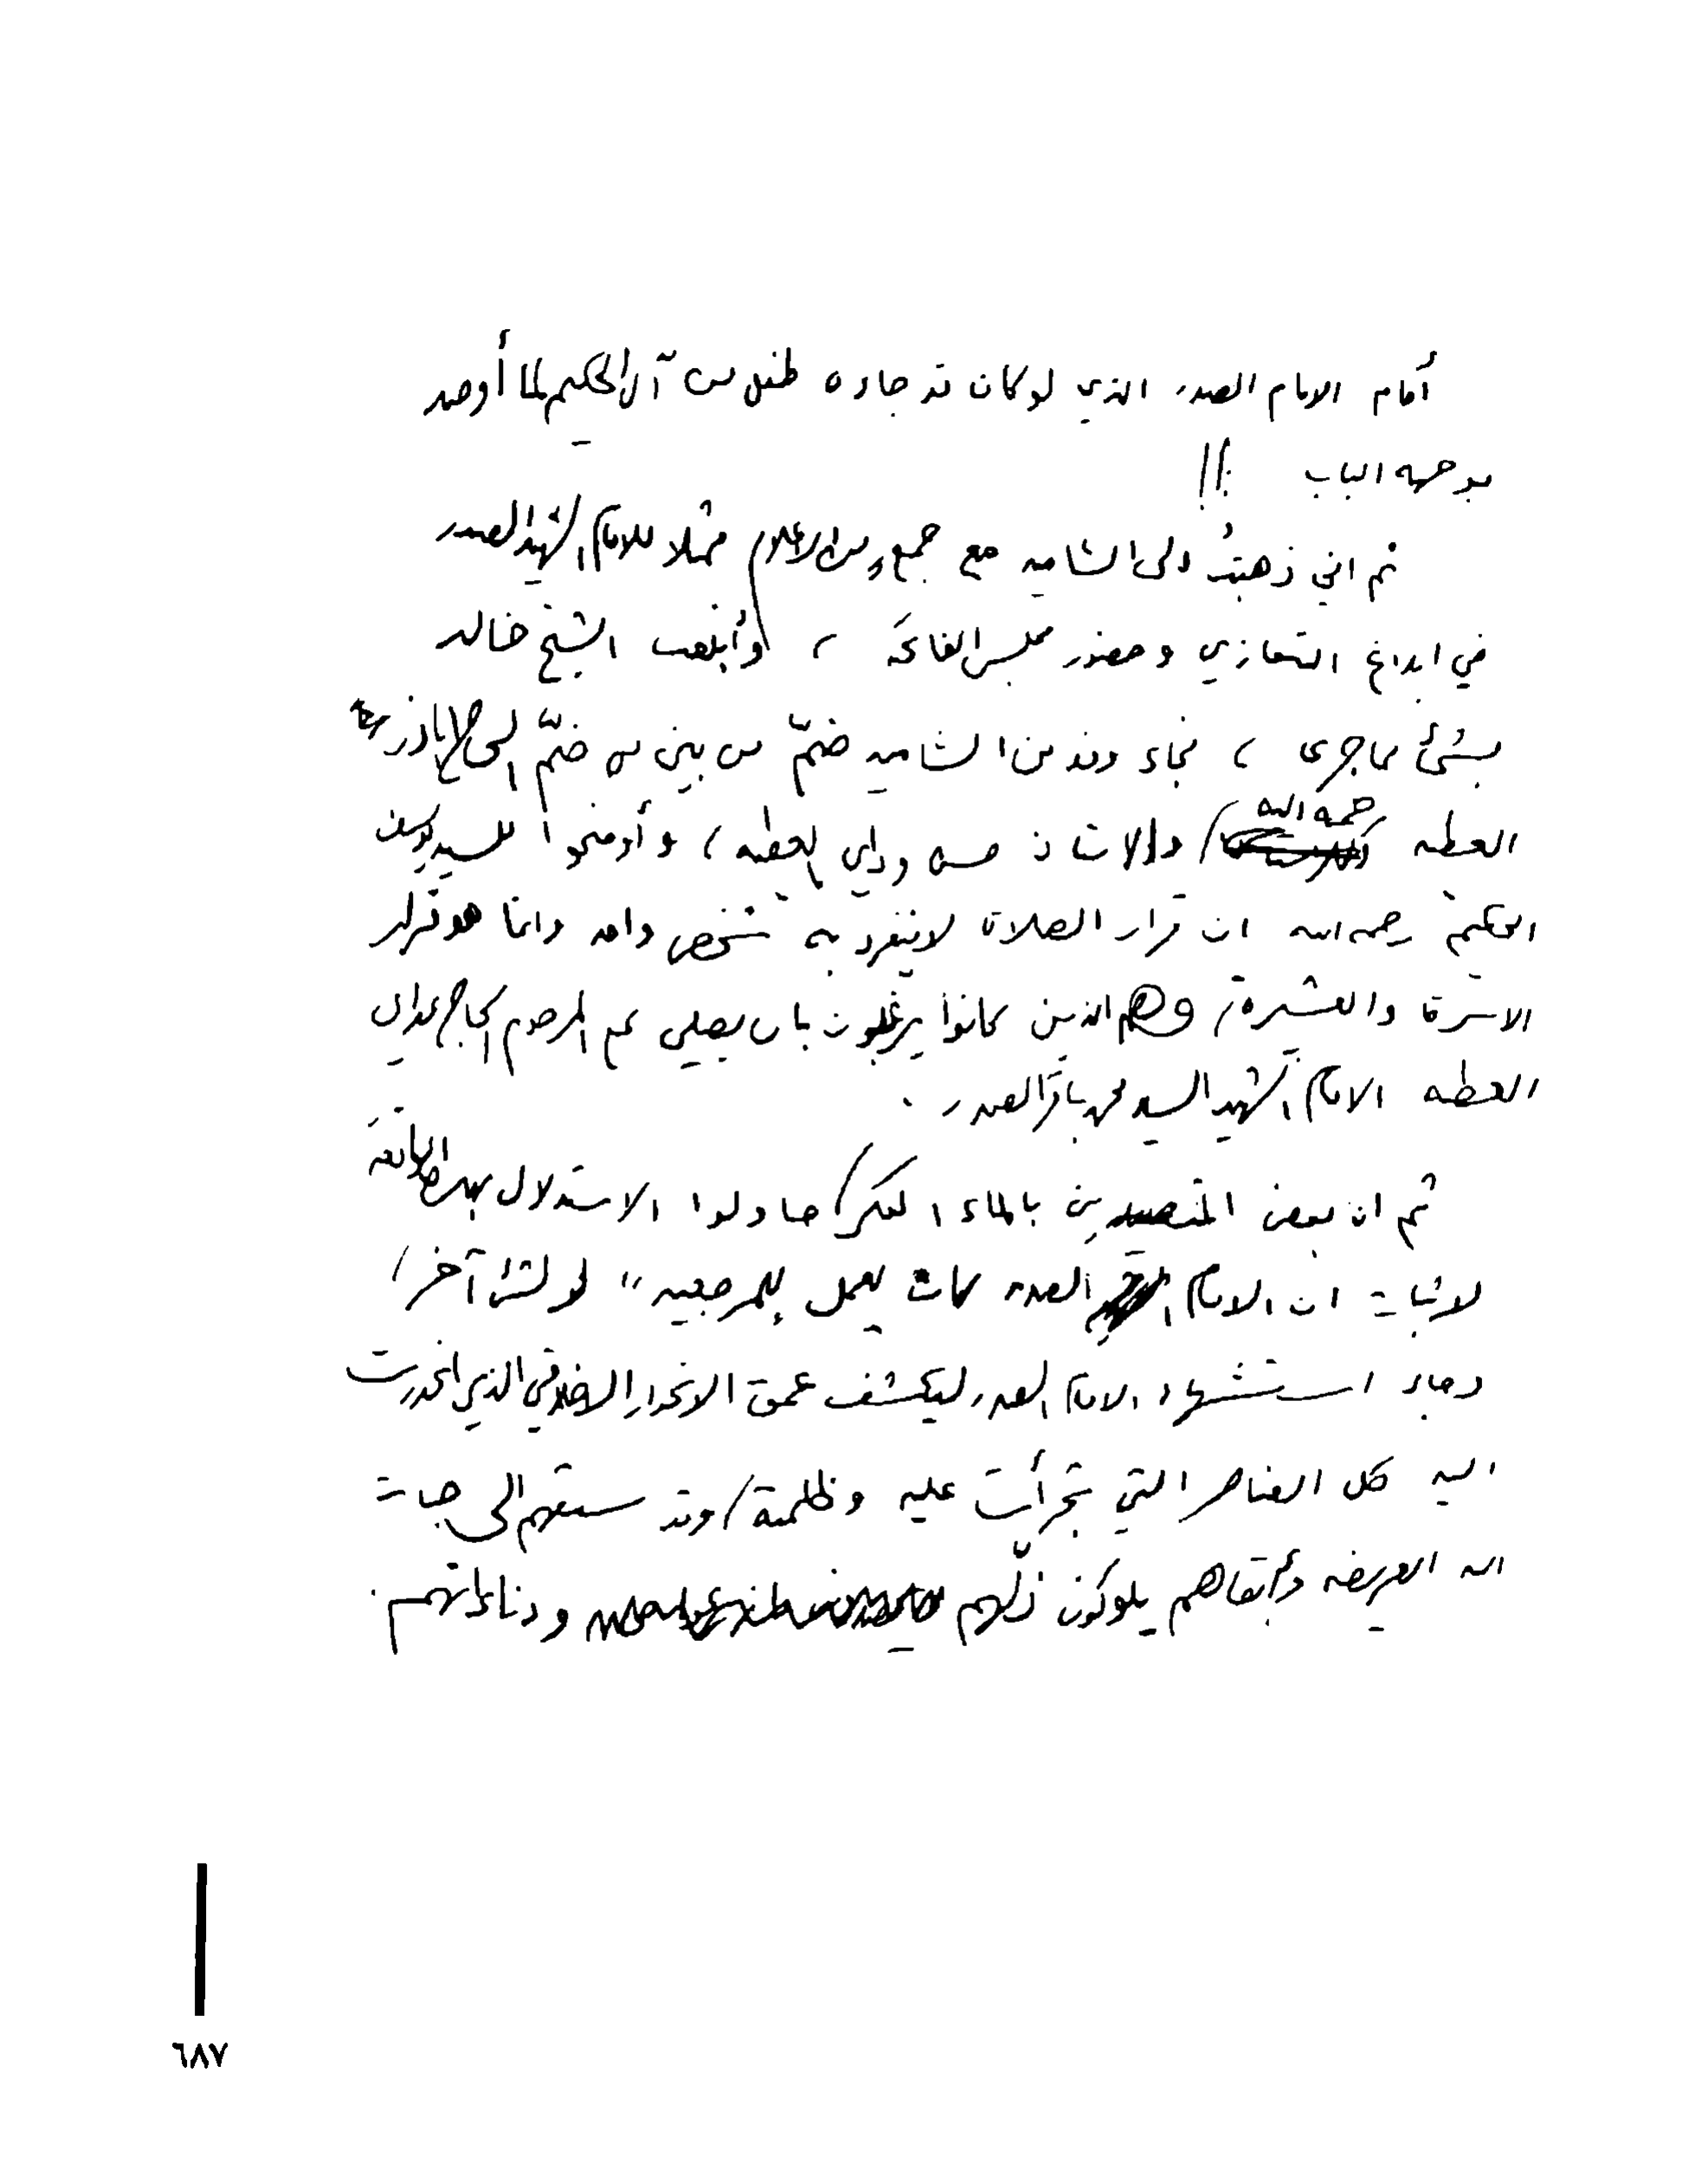 أمام الامام الصدر الذي لو كان قد جاءه طفل من آل الحكيم لما أوصد
بوجهه الباب !!
ثم اني ذهبتُ الى الشاميه مع جمع من الاعلام ممثلا للامام الشهيد الصدر
في ابلاغ التعازي وحضور مجلس الفاتحة ، وأبلغت الشيخ خالد
بشئ مما جرى ، فجاء وفد من الشاميه ضمّ من بين من ضمّ الحاج
العطيه رحمه الله والاستاذ حسن وداي العطيه ، وأوضحوا للسيد يوسف
الحكيم رحمه الله ان قرار الصلاة لا ينفرد به شخص واحد وانما هو قرار
الاسرة والعشيرة ، وهم الذين كانوا يرغبون بان يصلي على المرحوم الحاج
العطيه الامام الشهيد السيد محمد باقر الصدر .
ثم ان بعض المتصيدين بالماء العكر حاولوا الاستدلال بهذه
لاثبات ان الامام الصدر كان يعمل للمرجعيه " أو لشئ آخر ،
وجاء استشهاد الامام الصدر ليكشف عمق الانحدار الاخلاقي الذي انحدرت
اليه كل العناصر التي تجرأت عليه وظلمته ، وقد سبقهم الى جنات
الله العريضه وأبقاهم يلوكون ذلّهم ودناءاتهم .
٦٨٧